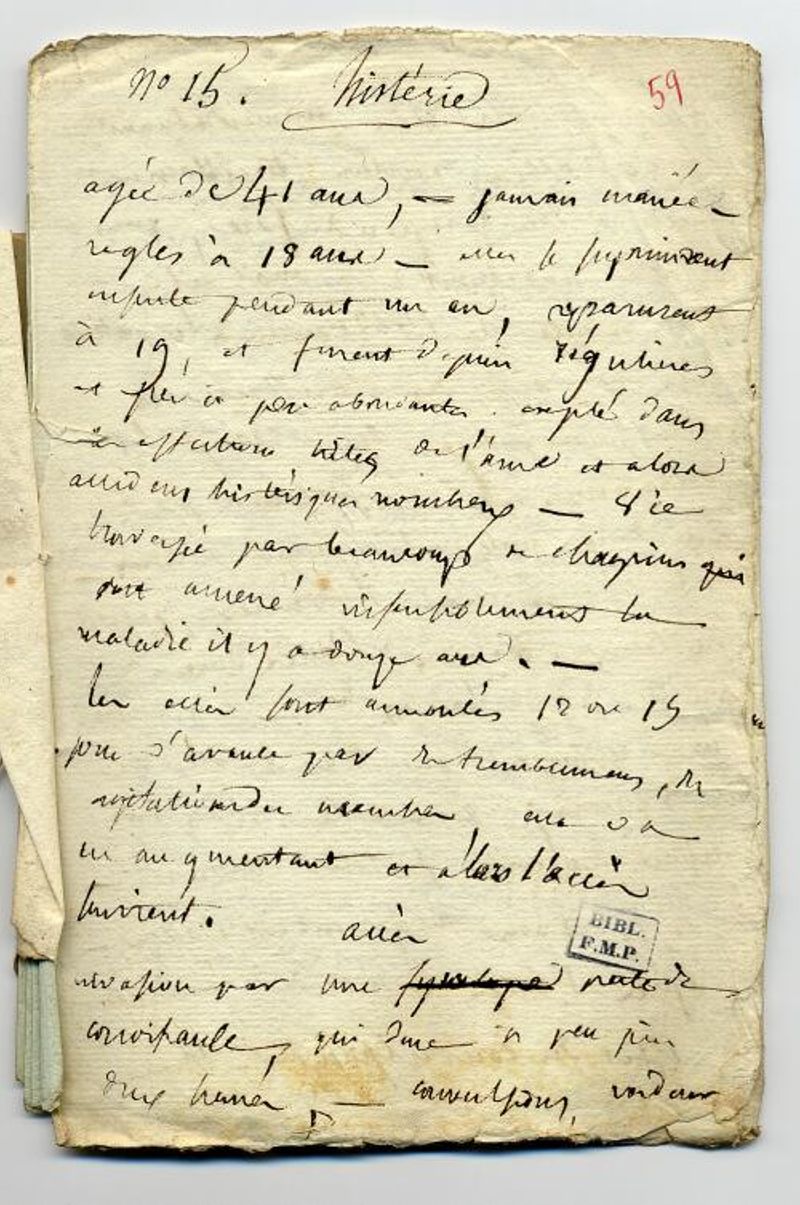 no 15. histérie 59
agée de 41 ans, — jamais mariée —
regles à 18 ans — elles se suprimerent
ensuite pendant un an, reparurent
à 19, et furent depuis régulieres
et peu abondantes. excepté dans
affections de l'ame et alors
accidens histériques nombreux — Vie
traversée par beaucoup de chagrins qui
ont amené insensiblement la
maladie il y a douze ans. —
les accès sont annoncés 12 ou 15
jours d'avance par des tremblemens, des
agitations des membres, cela va
en augmentant et alors l'accès
survient.
accès
BIBL.
F.M.P.
invasion par une syncope perte de
connoissance, qui dure à peu près
deux heures, — convulsions, roideur